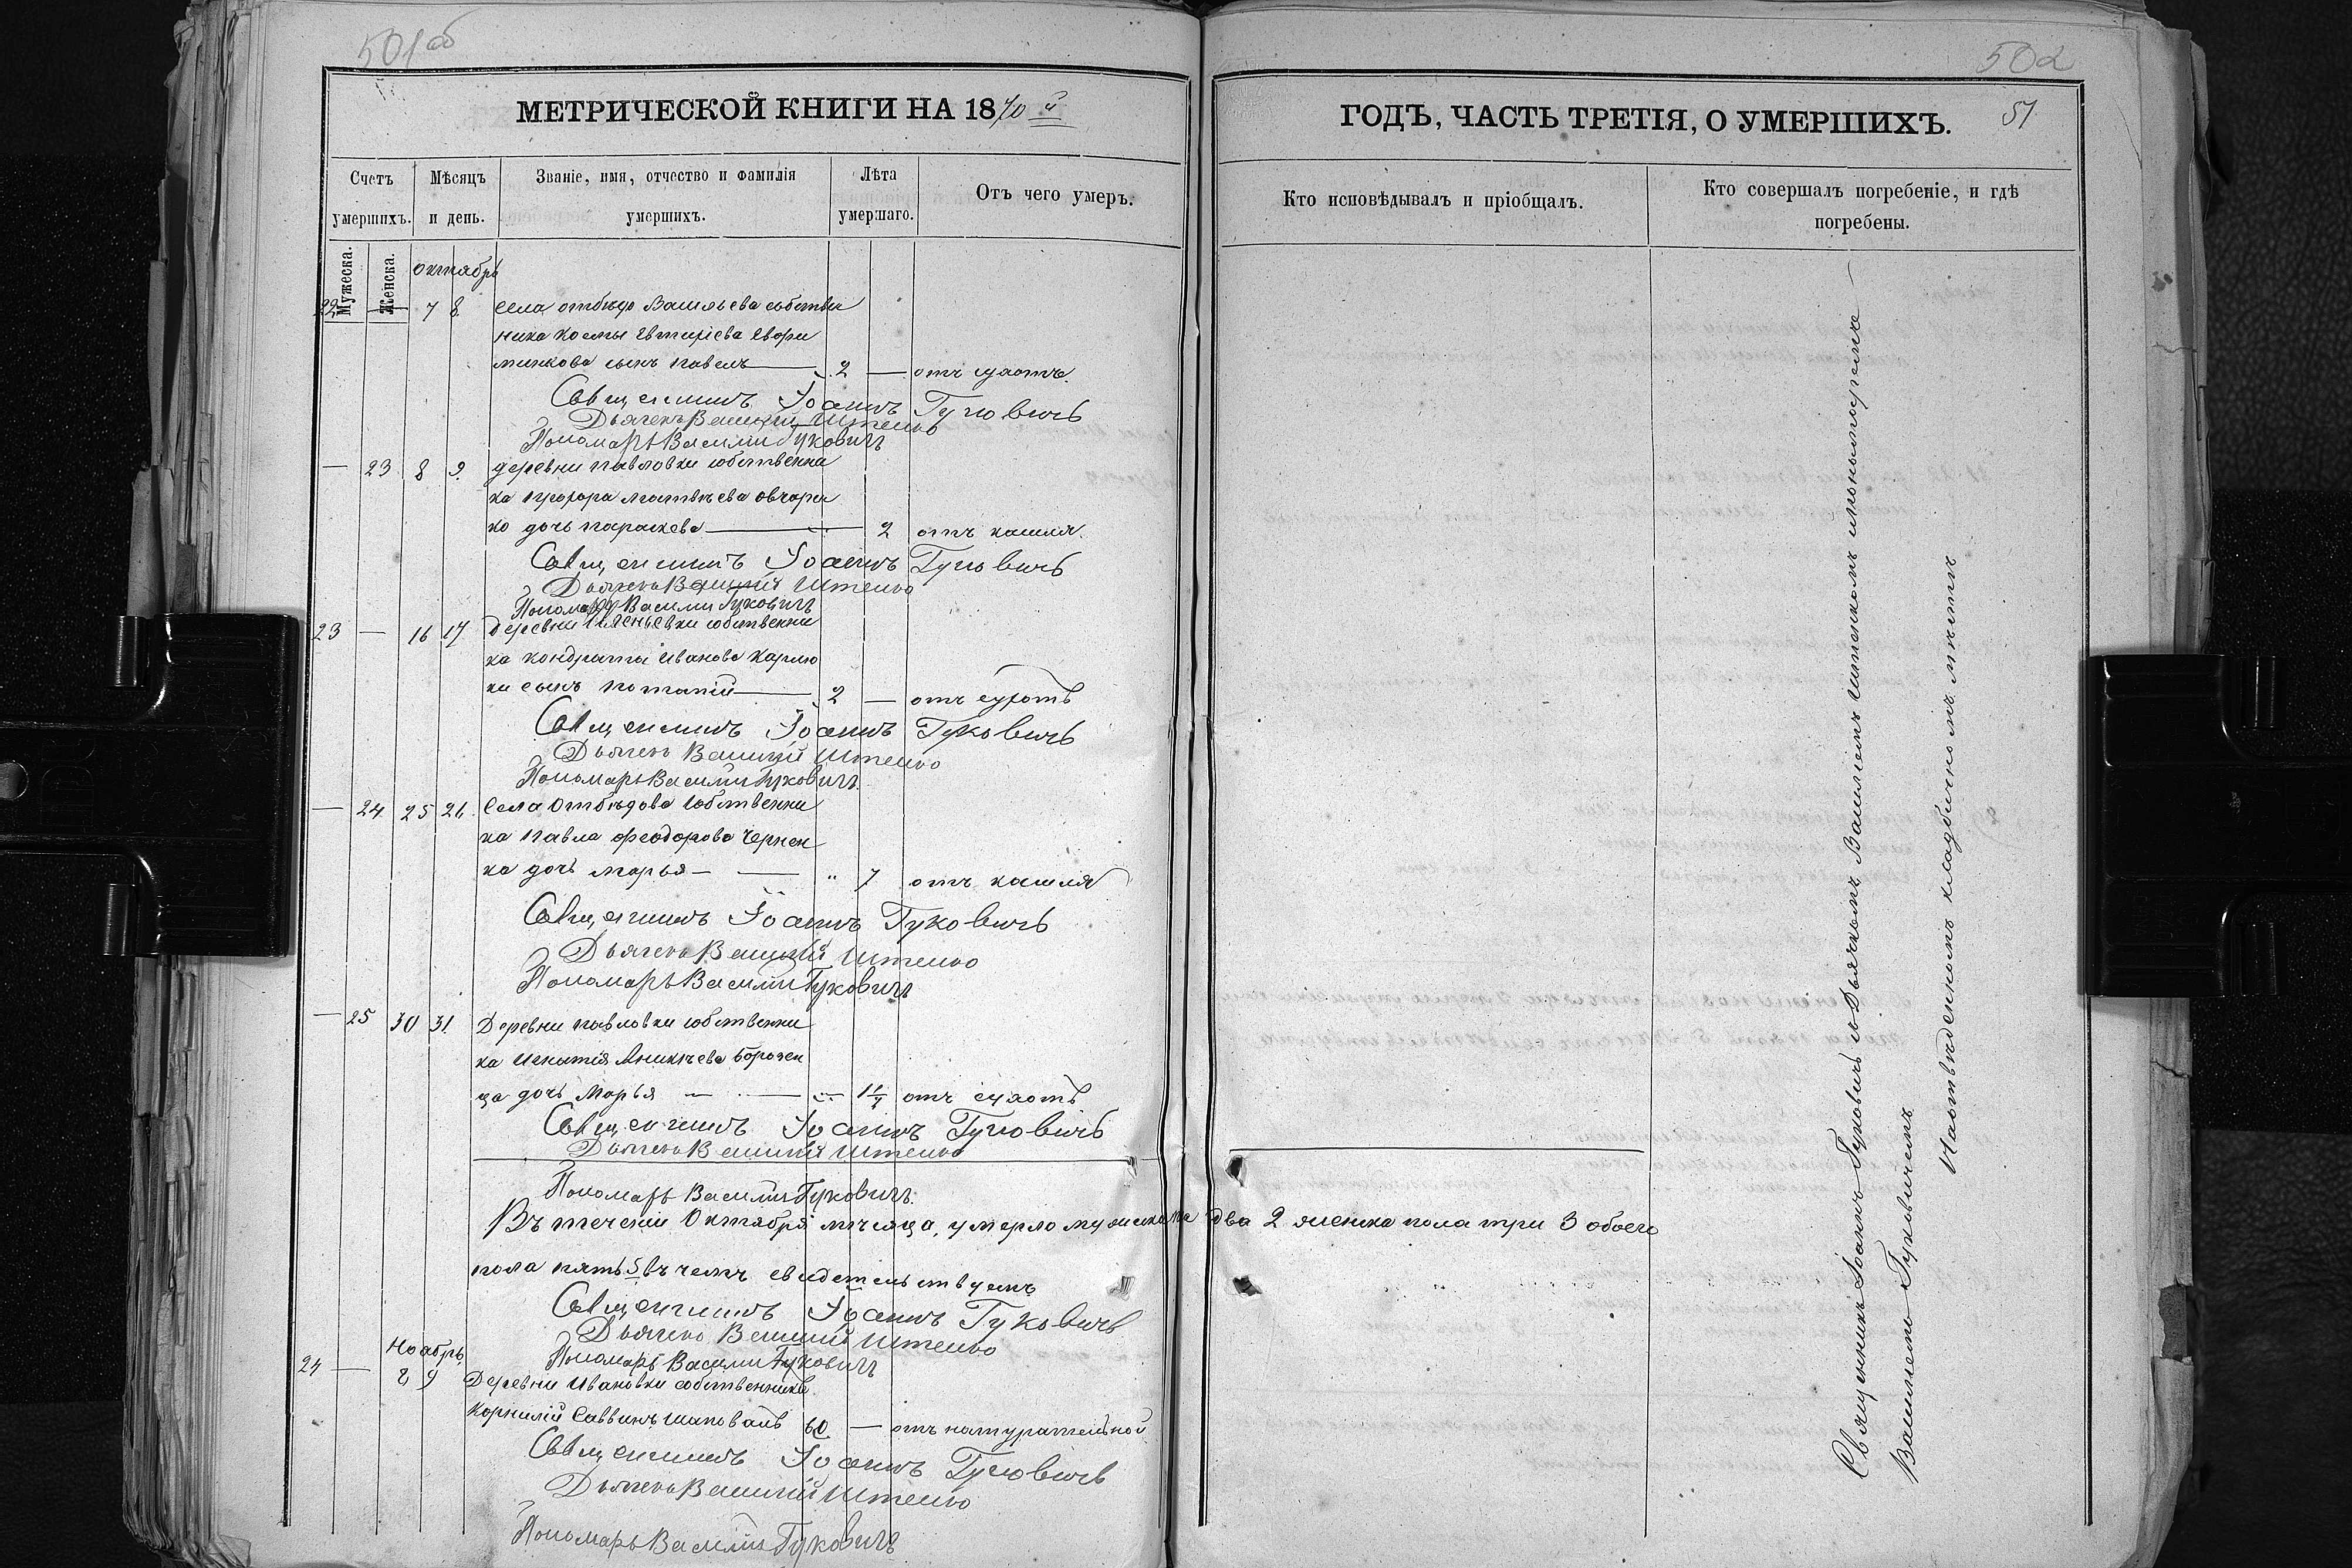 501 об
МЕТРИЧЕСКОЙ КНИГИ НА 1870й
Счетъ умершихъ.
Мѣсяцъ и день.
Званіе, имя, отчество и фамилія умершихъ.
Лѣта умершаго.
Отъ чего умеръ.
Мужеска.
Женска.
Октябрь
22 — 7 8 села Отбѣдо Васильева собственника
ника Космы
минкова сынъ Павелъ — 2 — отъ
Священникъ Іоаннъ Гуковичъ
Дьячекъ Василій Иштенко
Пономарь Василій Гуковичъ
— 23 8 9 деревни Павловки собственни
ка Прохора Матвѣева Овчарен
ко дочь Параскева — 2 отъ кашля
Священникъ Іоаннъ Гуковичъ
Дьячекъ Василій Иштенко
Пономарь Василій Гуковичъ
23 — 16 17 Деревни собственни
ка Кондратія Иванова Карлю
ки сынъ Потапій — 2 — отъ
Священникъ Іоаннъ Гуковичъ
Дьячекъ Василій Иштенко
Пономарь Василій Гуковичъ
— 24 25 26 Села Отбѣдова собственни
ка Павла Феодорова Чернен
ка дочь Марья — " 7 отъ кашля
Священникъ Іоаннъ Гуковичъ
Дьячекъ Василій Иштенко
Пономарь Василій Гуковичъ
— 25 30 31 Деревни Павловки собственни
ка Игнатія Аникѣева
ца дочь Марья — отъ
Священникъ Іоаннъ Гуковичъ
Дьячекъ Василій Иштенко
Пономарь Василій Гуковичъ
Въ теченіи Октября мѣсяца, умерло мужеска по два 2 женска пола три 3 обоего
пола пять 5 въ чемъ свидетельствуемъ
Священникъ Іоаннъ Гуковичъ
Дьячекъ Василій Иштенко
Пономарь Василій Гуковичъ
Ноябрь
24 — 8 9 Деревни Ивановки собственникъ
Корнилій Саввинъ Шаповалъ 60 — отъ натуральной
Священникъ Іоаннъ Гуковичъ
Дьячекъ Василій Иштенко
Пономарь Василій Гуковичъ
502
ГОДЪ, ЧАСТЬ ТРЕТІЯ, О УМЕРШИХЪ.
51
Кто исповѣдывалъ и пріобщалъ.
Кто совершалъ погребеніе, и гдѣ погребены.
Священникъ Іоаннъ Гуковичъ и Дьячкомъ Василіемъ Иштенкомъ и пономаремъ
Василіемъ Гуковичемъ
На отвѣденномъ кладбищномъ мѣстѣ